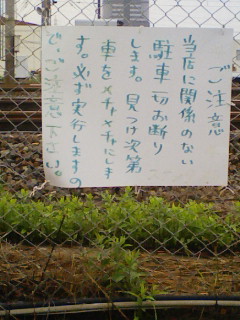 ご注意
当店に関係のない
駐車一切お断り
します。見つけ次第
車をメチャメチャにしま
す。必ず実行しますの
で、ご注意下さい。